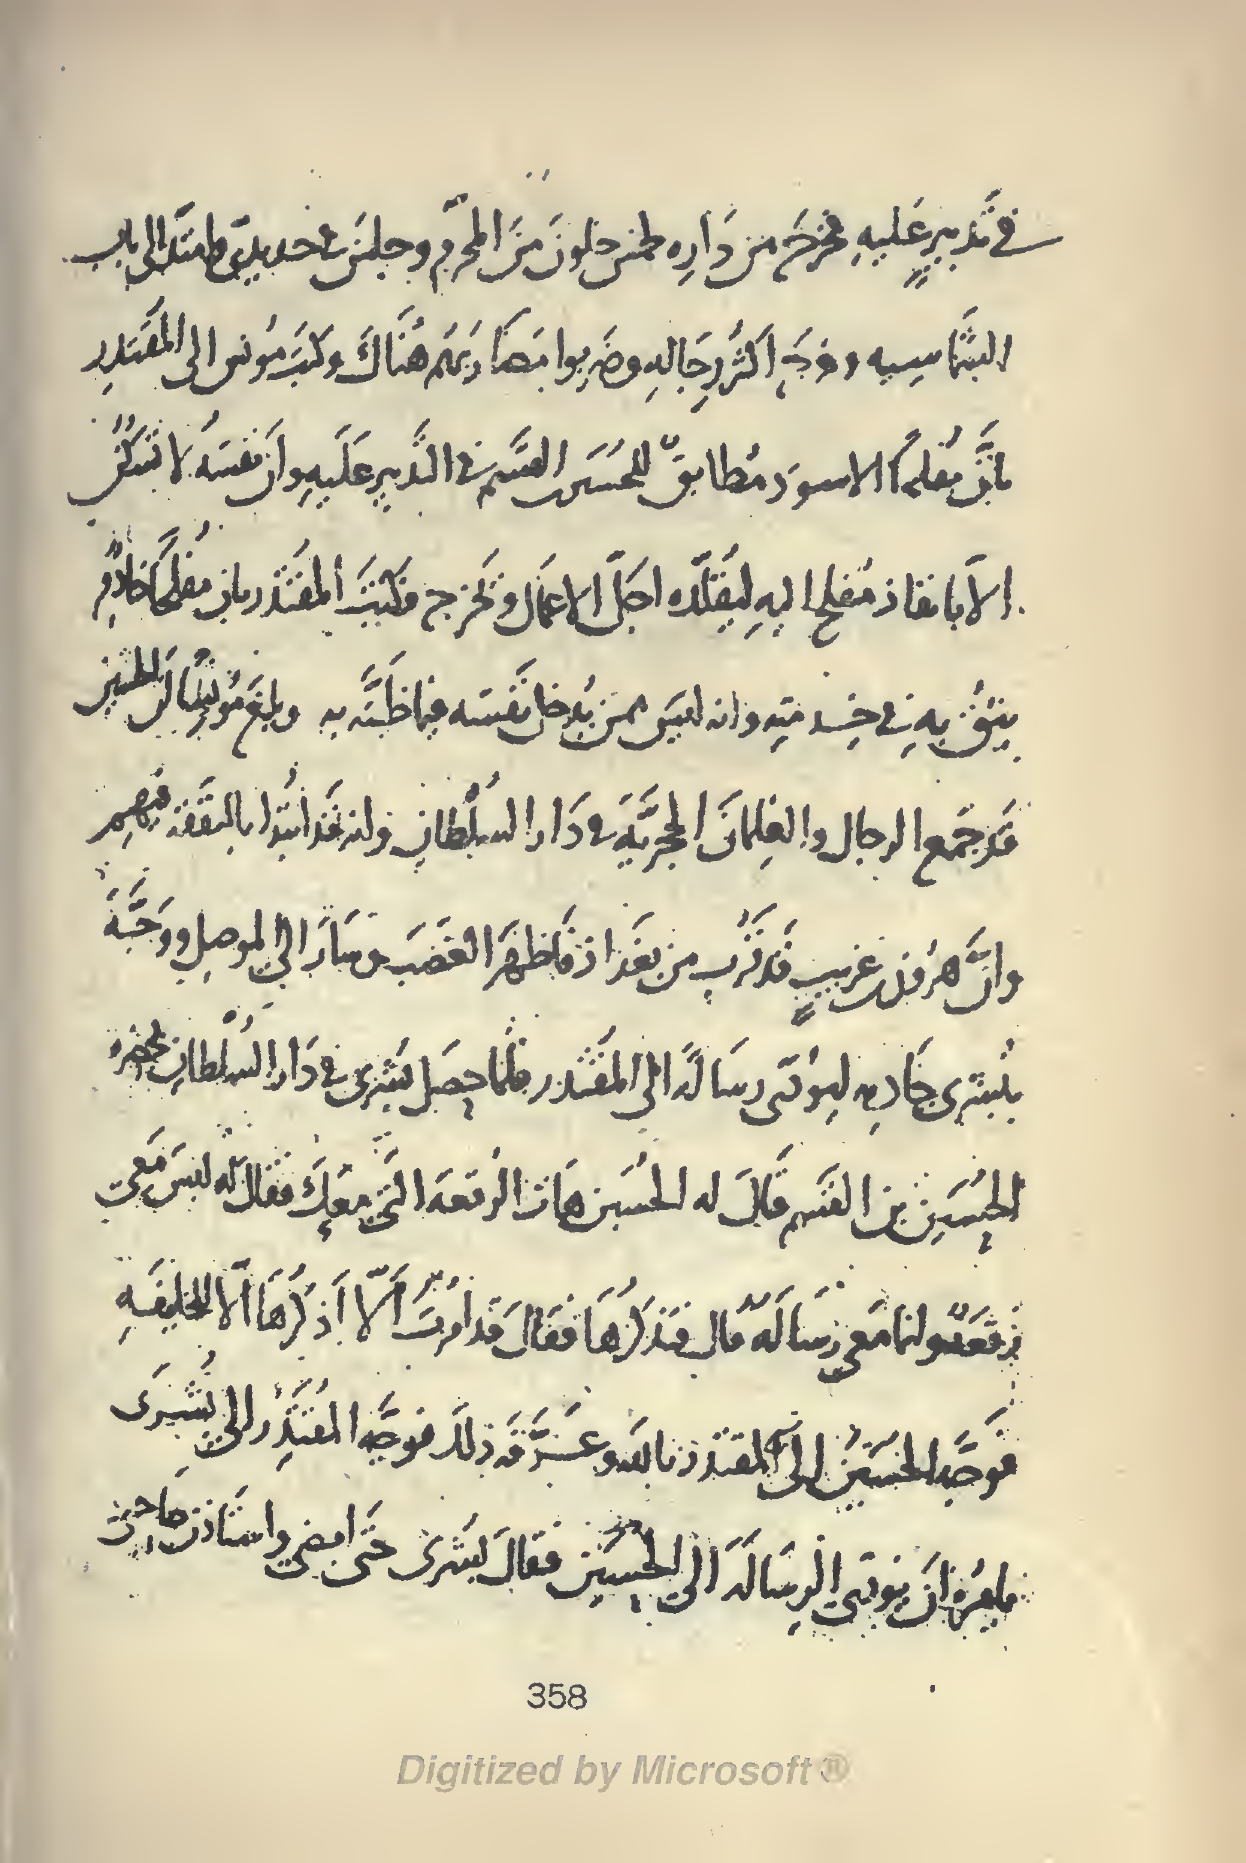 في تدبيرٍ عليهِ فخرج من دَارِه لخمس خلون مَن المحرّم وجلس في حديديّ وامتدّ الى باب
الشماسيه وخرج اكثرُ رجالهِ وضربوا مضاربهم هُناك وكتب مونس الى المقتدر
بانّ مُفلحاً الاسود مُطابق للحُسين بن القسم في التدبير عليهِ وان نفسَه لا تسكنُ
الاّ بانفاذ مُفلح اليهِ ليقلّده اجلّ الاعمَال ويخرج فكتبَ المقتدر بان مُفلحاً خادمٌ
يثقُ بهِ في خدمتهِ وانه ليس ممن يُدخل نفسَه فيما ظنّه به وبلغ مُونساً ان الحسين
قد جمع الرجال والغِلمان الحجريّة في دَار السلطان وانه قد ابتدا بالنفقة فيهم
وانّ هرون بن غريبٍ قد قرُب من بغداذ فاظهرَ الغضبَ وسارَ الى الموصل ووجّهَ
ببُشرى خادمه ليودّى رسالةً الى المقتدر فلمّا حصل بُشرى في دَار السُلطان بحضرة
الحُسين بن القسم قالَ له الحُسين هات الرُقعة التي معك فقال له ليسَ معى
رقعةٌ وانما معى رسالَةٌ قال فتذكرُها فقالَ قد اُمرتُ اَلاّ اَذكرُها اِلّا للخليفهِ
فوجّه الحُسينُ الى المقتدر بالله وعرّفه ذلك فوجّه المُقتدرُ الى بُشرى
يامرُه اَن يودّى الرِسالةَ الى الحُسين فقالَ بُشرى حتّى امضي واستاذن صاحبي
358
Digitized by Microsoft ®